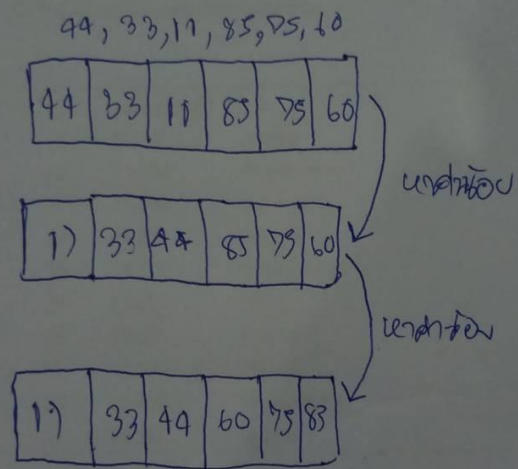 44, 33, 11, 85, 75, 60
44 33 11 85 75 60
หาค่าน้อย
11 33 44 85 75 60
หาค่าน้อย
11 33 44 60 75 85